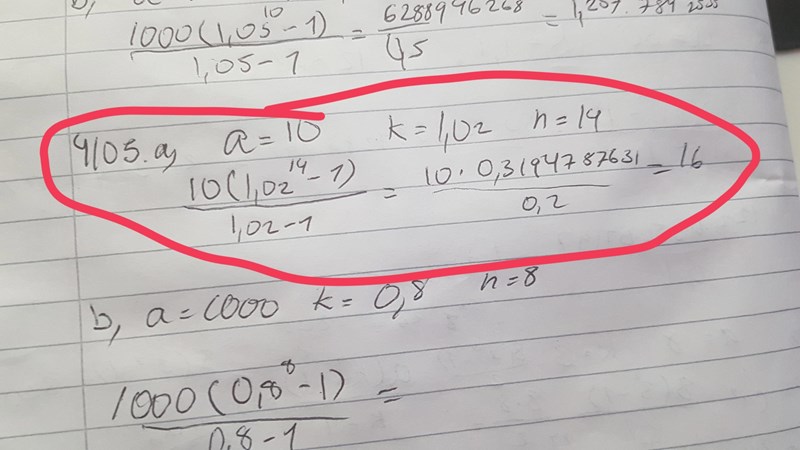 1000(1,05^10 - 1) / 1,05 - 1 = 6288946268 /
4105. a) a = 10 k = 1,02 n = 14
10(1,02^14 - 1) / 1,02 - 1 = 10 · 0,3194787631 / 0,2 = 16
b, a = 1000 k = 0,8 n = 8
1000(0,8^8 - 1) / 0,8 - 1 =